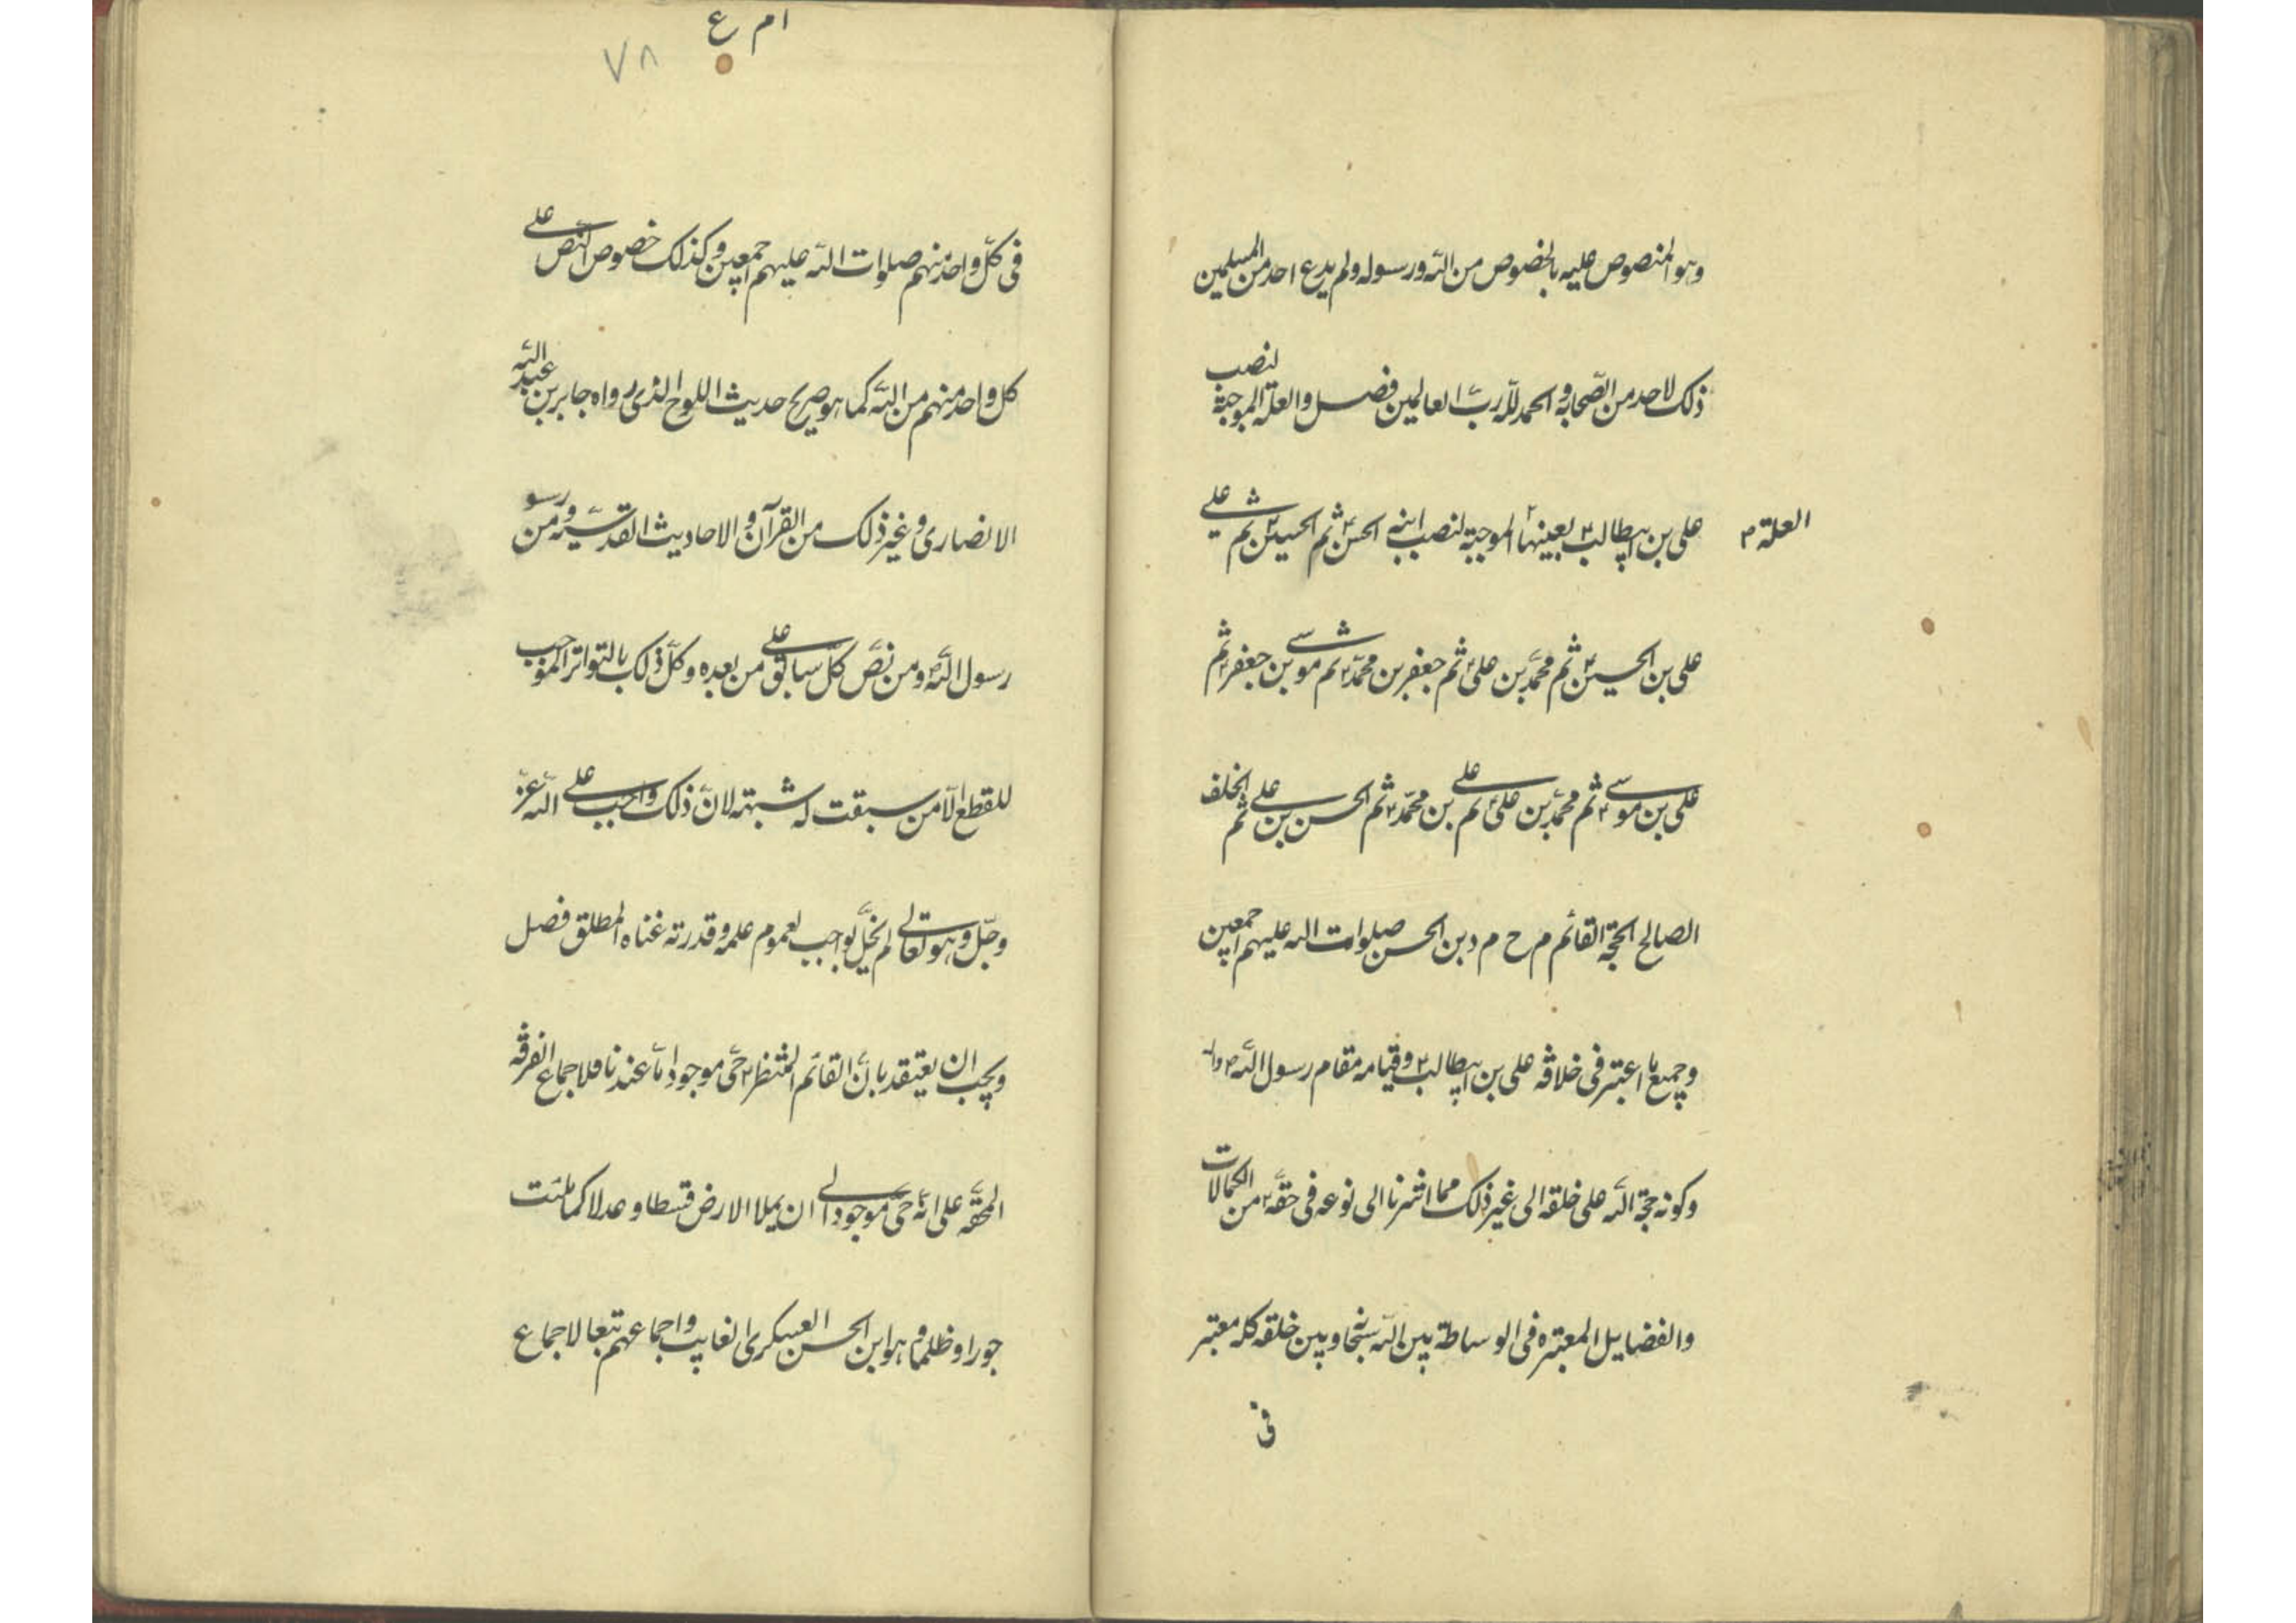 وهو المنصوص عليه بالخصوص من الله ورسوله ولم يدع احد من المسلمين
ذلك لاحد من الصّحابة والحمد للّه ربّ العالمين فصل والعلّة الموجبة لنصب
علي بن ابيطالب ع بعينها الموجبة لنصب ابنه الحسن ع ثم الحسين ع ثم
العلة م
علي بن الحسين ع ثم محمّد بن علي ع ثم جعفر بن محمّد ع ثم موسى بن جعفر ع ثم
علي بن موسى ع ثم محمّد بن علي ع ثم علي بن محمّد ع ثم الحسن بن علي ثم الخلف
الصالح الحجّة القائم م ح م د بن الحسن صلوات الله عليهم اجمعين
وجميع ما اعتبر في خلافة علي بن ابيطالب ع وقيامه مقام رسول الله ص
وكونه حجّة الله على خلقه الى غير ذلك مما اشرنا الى نوعه في حقّه ع من الكمالات
والفضايل المعتبره في الوساطة بين الله سبحانه وبين خلقه كله معتبر
في
ام ع
٧٨
في كلّ واحد منهم صلوات الله عليهم اجمعين وكذلك خصوص النّص على
كل واحد منهم من الله كما هو صريح حديث اللوح الذي رواه جابر بن عبد الله
الانصاري وغير ذلك من القرآن والاحاديث القدسيّه ومن رسو
رسول الله ص ومن نصّ كلّ سابق على من بعده وكلّ ذلك بالتّواتر الموجب
للقطع الّا من سبقت له شبهته لانّ ذلك واجب على الله عزّ
وجلّ وهو تعالى لم يخلّ بواجب لعموم علمه وقدرته غناه المطلق فصل
ويجب ان يعتقد بانّ القائم المنتظر ع حيّ موجود امّا عندنا فلاجماع الفرقه
المحقّه على انّه حيّ موجود الى ان يملا الارض قسطا وعدلا كما ملئت
جورا وظلما وهو ابن الحسن العسكري الغايب واجماعهم تبعا لاجماع